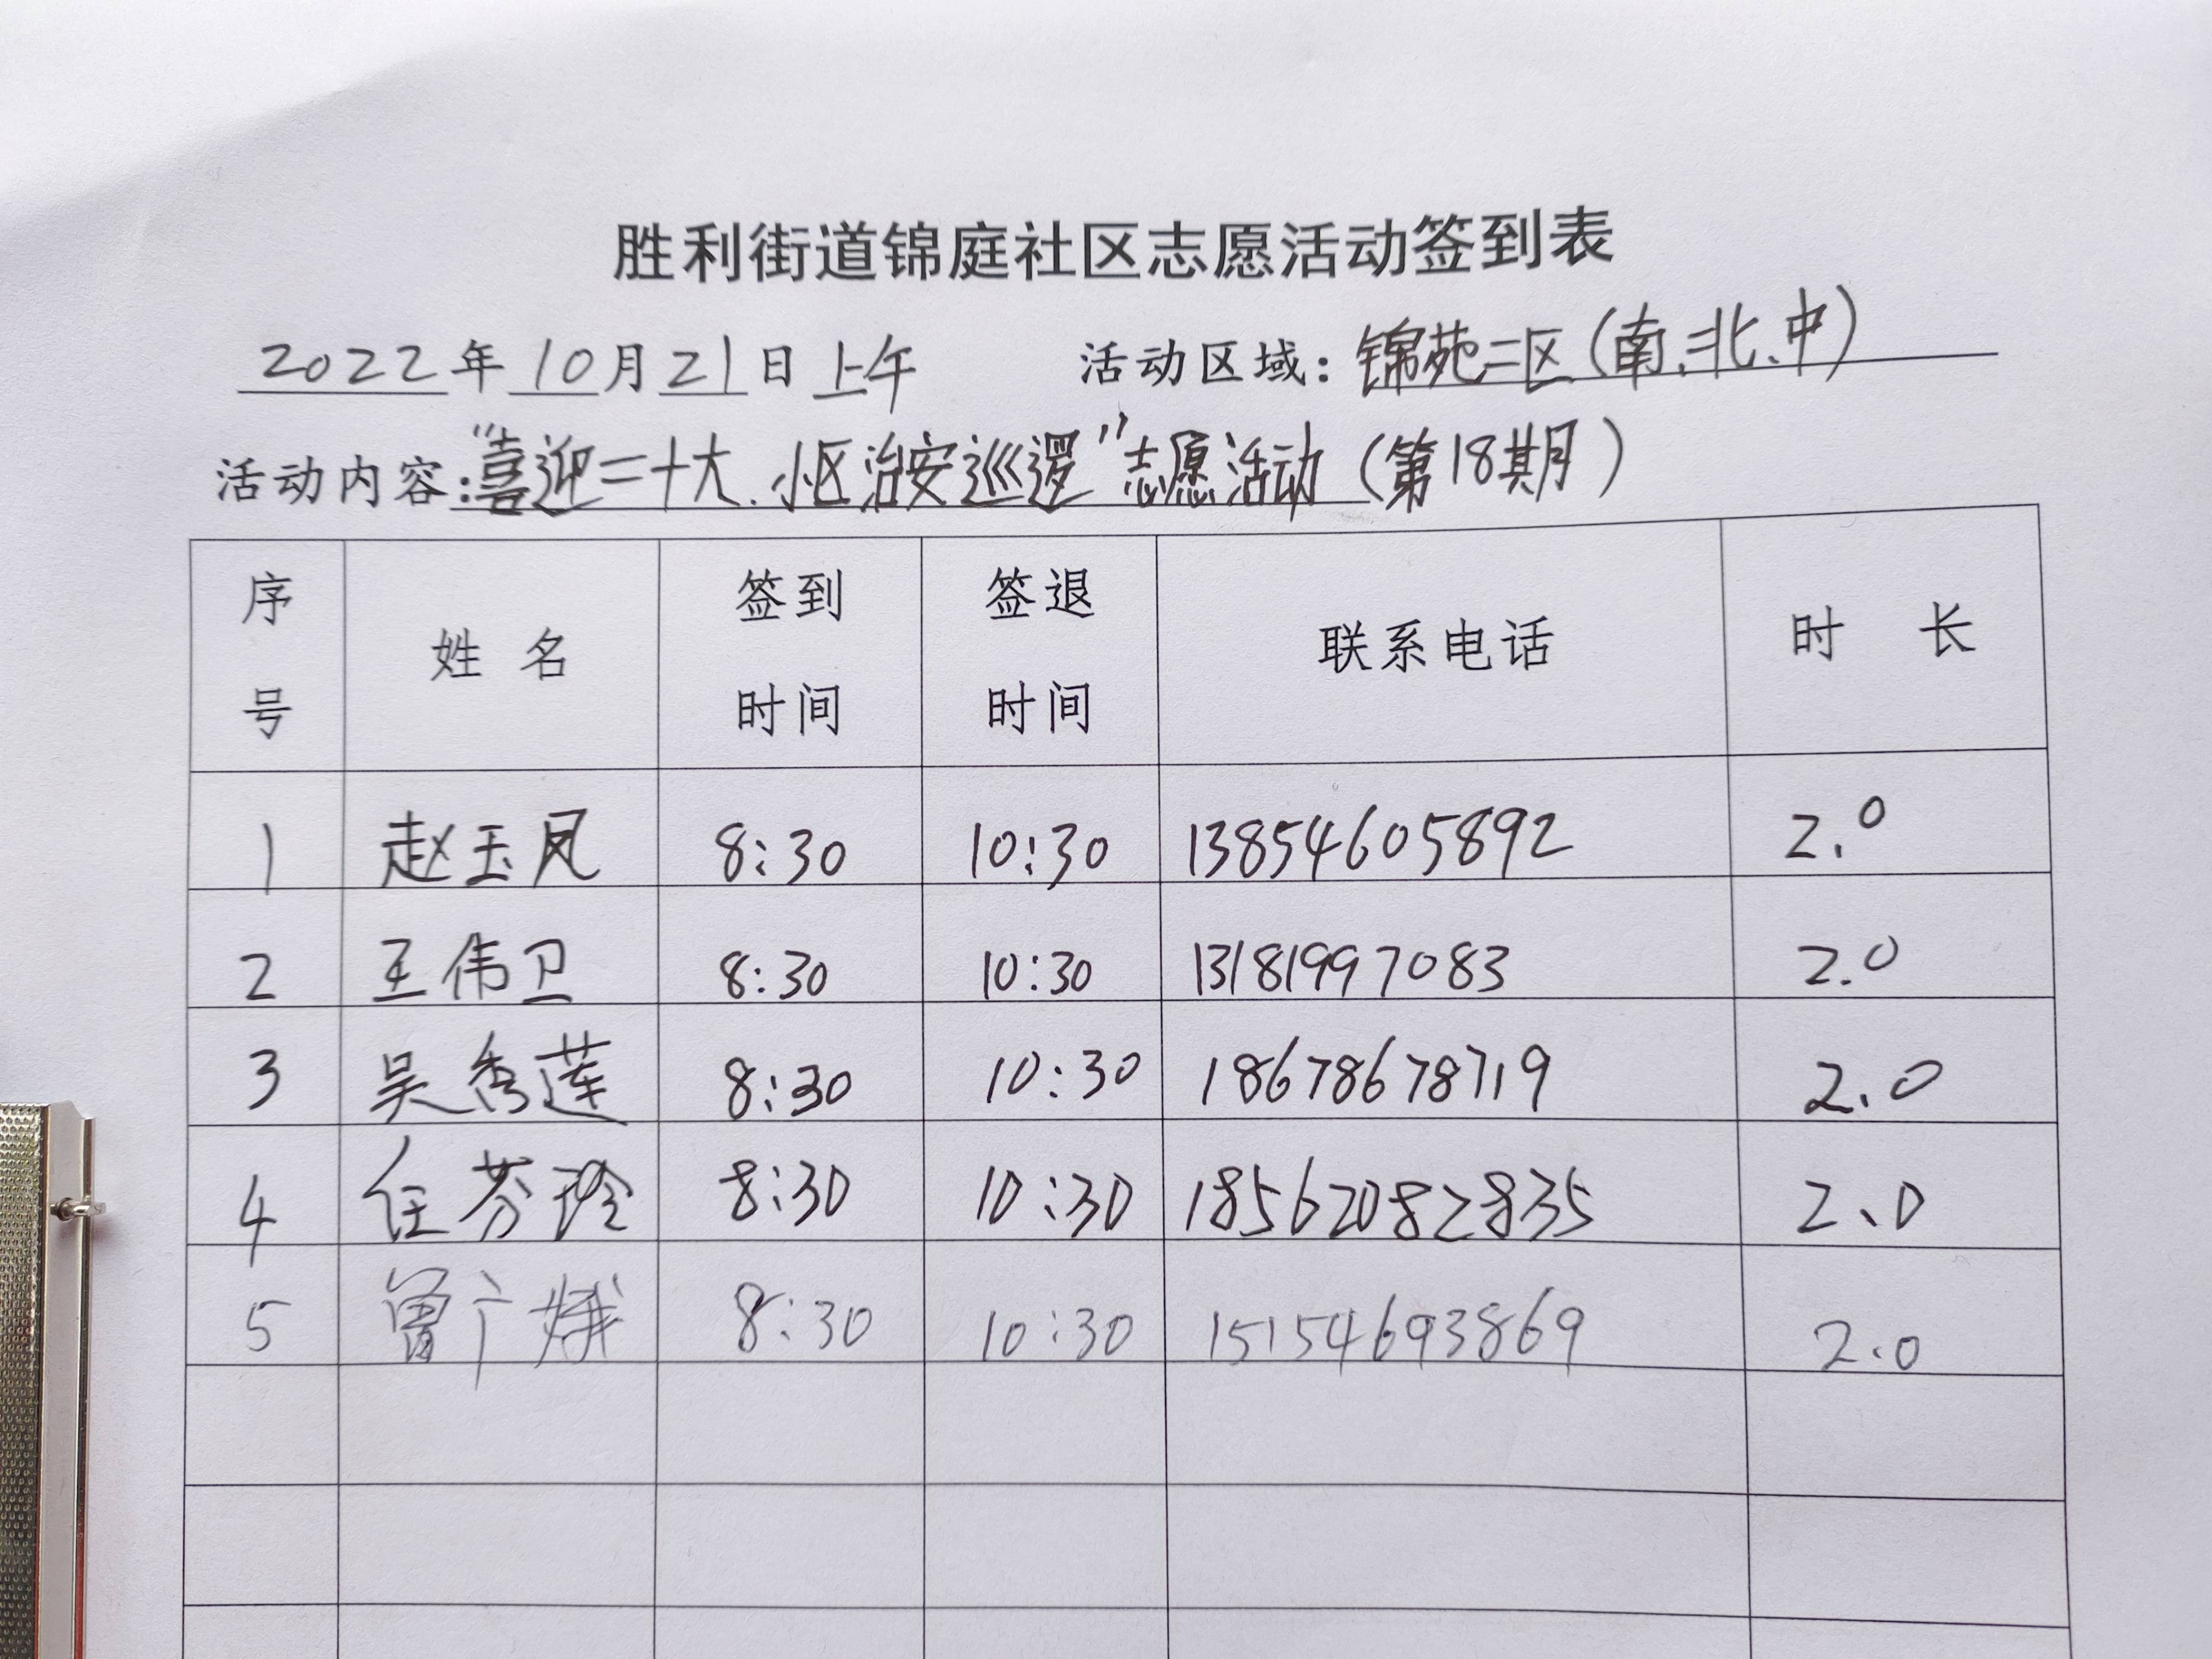 胜利街道锦庭社区志愿活动签到表
2022年10月21日上午 活动区域：锦苑二区（南、北、中）
活动内容：“喜迎二十大、小区治安巡逻”志愿活动（第18期）
序号 姓名 签到时间 签退时间 联系电话 时长
1 赵玉凤 8:30 10:30 13854605892 2.0
2 王伟卫 8:30 10:30 13181997083 2.0
3 吴秀莲 8:30 10:30 18678678719 2.0
4 任芬玲 8:30 10:30 18562082835 2.0
5 曾广娥 8:30 10:30 15154693869 2.0